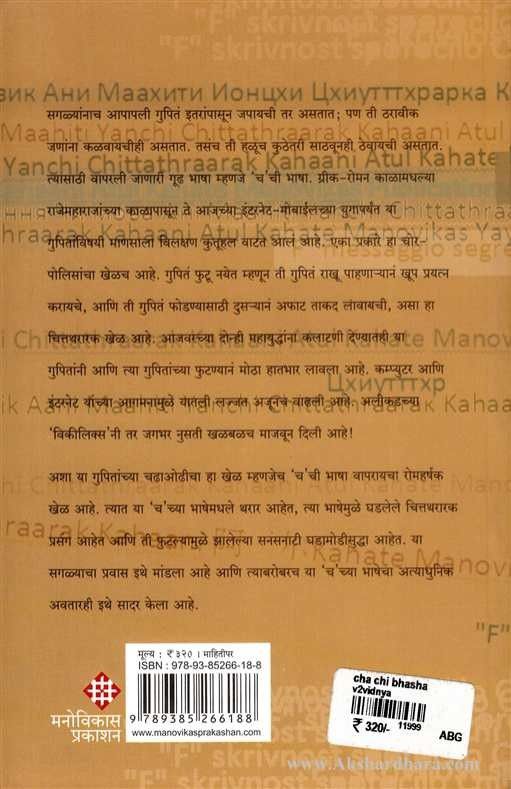 "F" skrivnost
зик Ани Маахити Ионцхи Цхиутттхрарка К
सगळ्यांनाच आपापली गुपितं इतरांपासून जपायची तर असतात; पण ती ठरावीक
Maahiti Yanchi Chittathraarak Kahaani Atul
जणांना कळवायचीही असतात. तसच ती हळूच कुठेतरी साठवूनही ठेवायची असतात.
Yanchi Chittathraarak Kahaani Atul Kahate
त्यासाठी वापरली जाणारी गूढ भाषा म्हणजे 'च'ची भाषा. ग्रीक-रोमन काळामधल्या
राजेमहाराजांच्या काळापासून ते आजच्या इंटरनेट-मोबाईलच्या युगापर्यंत या
hraarak Kahaani Atul Kahate Manovikas Yay
गुपितांविषयी माणसाला विलक्षण कुतूहल वाटत आलं आहे. एका प्रकारे हा चोर-
messaggio segre
पोलिसांचा खेळच आहे. गुपितं फुटू नयेत म्हणून ती गुपितं राखू पाहणाऱ्यानं खूप प्रयत्न
करायचे, आणि ती गुपितं फोडण्यासाठी दुसऱ्यानं अफाट ताकद लावायची, असा हा
चित्तथरारक खेळ आहे. आजवरच्या दोन्ही महायुद्धांना कलाटणी देण्यातही या
i Chittathraarak Kahaani Atul Kahate Manov
गुपितांनी आणि त्या गुपितांच्या फुटण्यानं मोठा हातभार लावला आहे. कम्प्युटर आणि
Цхиутттхр
इंटरनेट यांच्या आगमनामुळे यातली लज्जत अजूनच वाढली आहे. अलीकडच्या
'विकीलिक्स'नी तर जगभर नुसती खळबळच माजवून दिली आहे!
अशा या गुपितांच्या चढाओढीचा हा खेळ म्हणजेच 'च'ची भाषा वापरायचा रोमहर्षक
खेळ आहे. त्यात या 'च'च्या भाषेमधले थरार आहेत, त्या भाषेमुळे घडलेले चित्तथरारक
प्रसंग आहेत आणि ती फुटल्यामुळे झालेल्या सनसनाटी घडामोडीसुद्धा आहेत. या
सगळ्याचा प्रवास इथे मांडला आहे आणि त्याबरोबरच या 'च'च्या भाषेचा अत्याधुनिक
अवतारही इथे सादर केला आहे.
"F"
मूल्य : ₹ ३२० । माहितीपर
ISBN : 978-93-85266-18-8
9 789385 266188
www.manovikasprakashan.com
मनोविकास
प्रकाशन
cha chi bhasha
v2vidnya
₹ 320/- 11999
ABG
www.Akshardhara.com
"F" skrivnost sporocilo